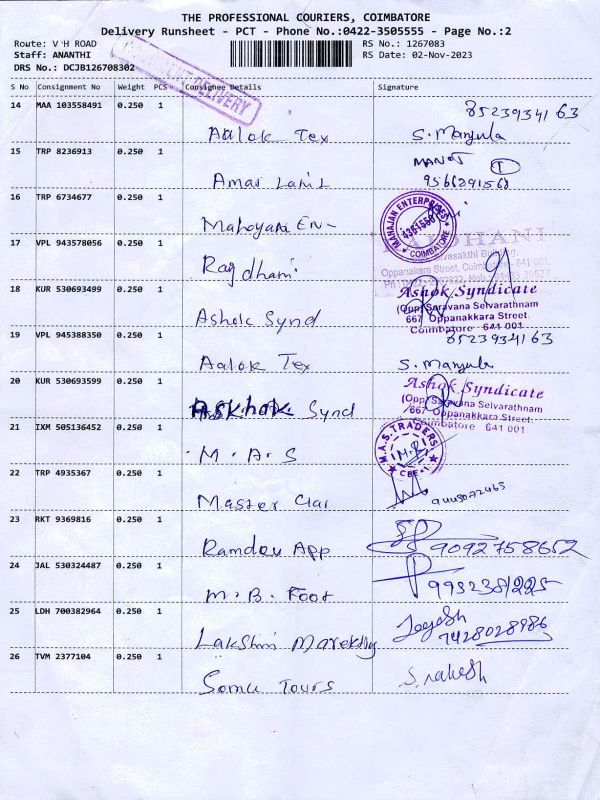 THE PROFESSIONAL COURIERS, COIMBATORE
Delivery Runsheet - PCT - Phone No.:0422-3505555 - Page No.:2
Route: V H ROAD RS No.: 1267083
Staff: ANANTHI RS Date: 02-Nov-2023
DRS No.: DCJB126708302
DELIVERY
S No Consignment No Weight PCS Consignee Details Signature
14 MAA 103558491 0.250 1 Aalok Tex 8523934163 S. Manjula
15 TRP 8236913 0.250 1 Amar MANOJ 9566291568
16 TRP 6734677 0.250 1 MAHAJAN ENTERPRISES COIMBATORE
17 VPL 943578056 0.250 1 Rajdhani
Oppanakara Street,
18 KUR 530693499 0.250 1 Ashok Synd Ashok Syndicate
(Opp) Saravana Selvarathnam
667 Oppanakkara Street
Coimbatore 641 001
19 VPL 945388350 0.250 1 Aalok Tex 8523934163 S. Manjula
20 KUR 530693599 0.250 1 Askhok. Synd Ashok Syndicate
(Opp) Saravana Selvarathnam
667 Oppanakkara Street
Coimbatore 641 001
21 IXM 505136452 0.250 1 M.A.S M.A.S TRADERS CBE-1
22 TRP 4935367 0.250 1 Master
23 RKT 9369816 0.250 1 Ramdev App 9092758652
24 JAL 530324487 0.250 1 M.B. Foot
25 LDH 700382964 0.250 1 Lakshmi Jogesh 7428028986
26 TVM 2377104 0.250 1 Somu Tours S. Rakesh